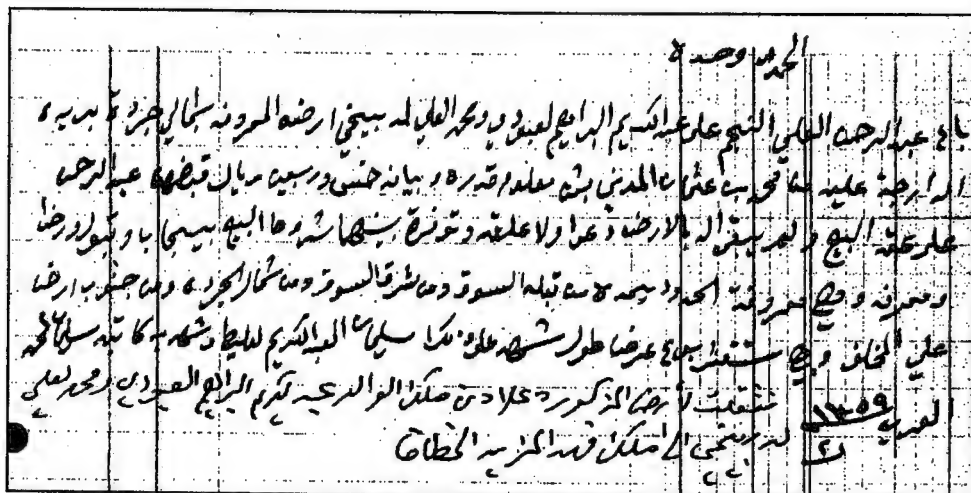 الحمد لله وحده
باع عبدالرحمن العلي النجم على عبدالكريم البراهيم العبودي ومحمد العلي الدبيخي ارضه المعروفه شمالي جردة بريده
الدارجة عليه من محمد بن عثمان المدني بثمن معلوم قدره وبيانه خمس وربعين ريال قبضهن عبدالرحمن
على عقد البيع ولم يبقى له بالارض دعوا ولا علقه وتوفرة بينهما شروط البيع بيجاب وقبول ورضا
ومعرفه وهي معروفة الحدود يحده من قبله السوق ومن شرق السوق ومن شمال الجرده ومن جنوب ارض
علي المخلف وهي عرض طول شهد على ذلك سليمان العبدالكريم وشهد به كاتبه سليمان المحمد
العمري ١٣٥٩ / ٢
الأرض المذكوره علاه من ملك الوالد عبدالكريم البراهيم العبودي ومحمد العلي
الدبيخي الى املاك فهد المزيد الخطاف